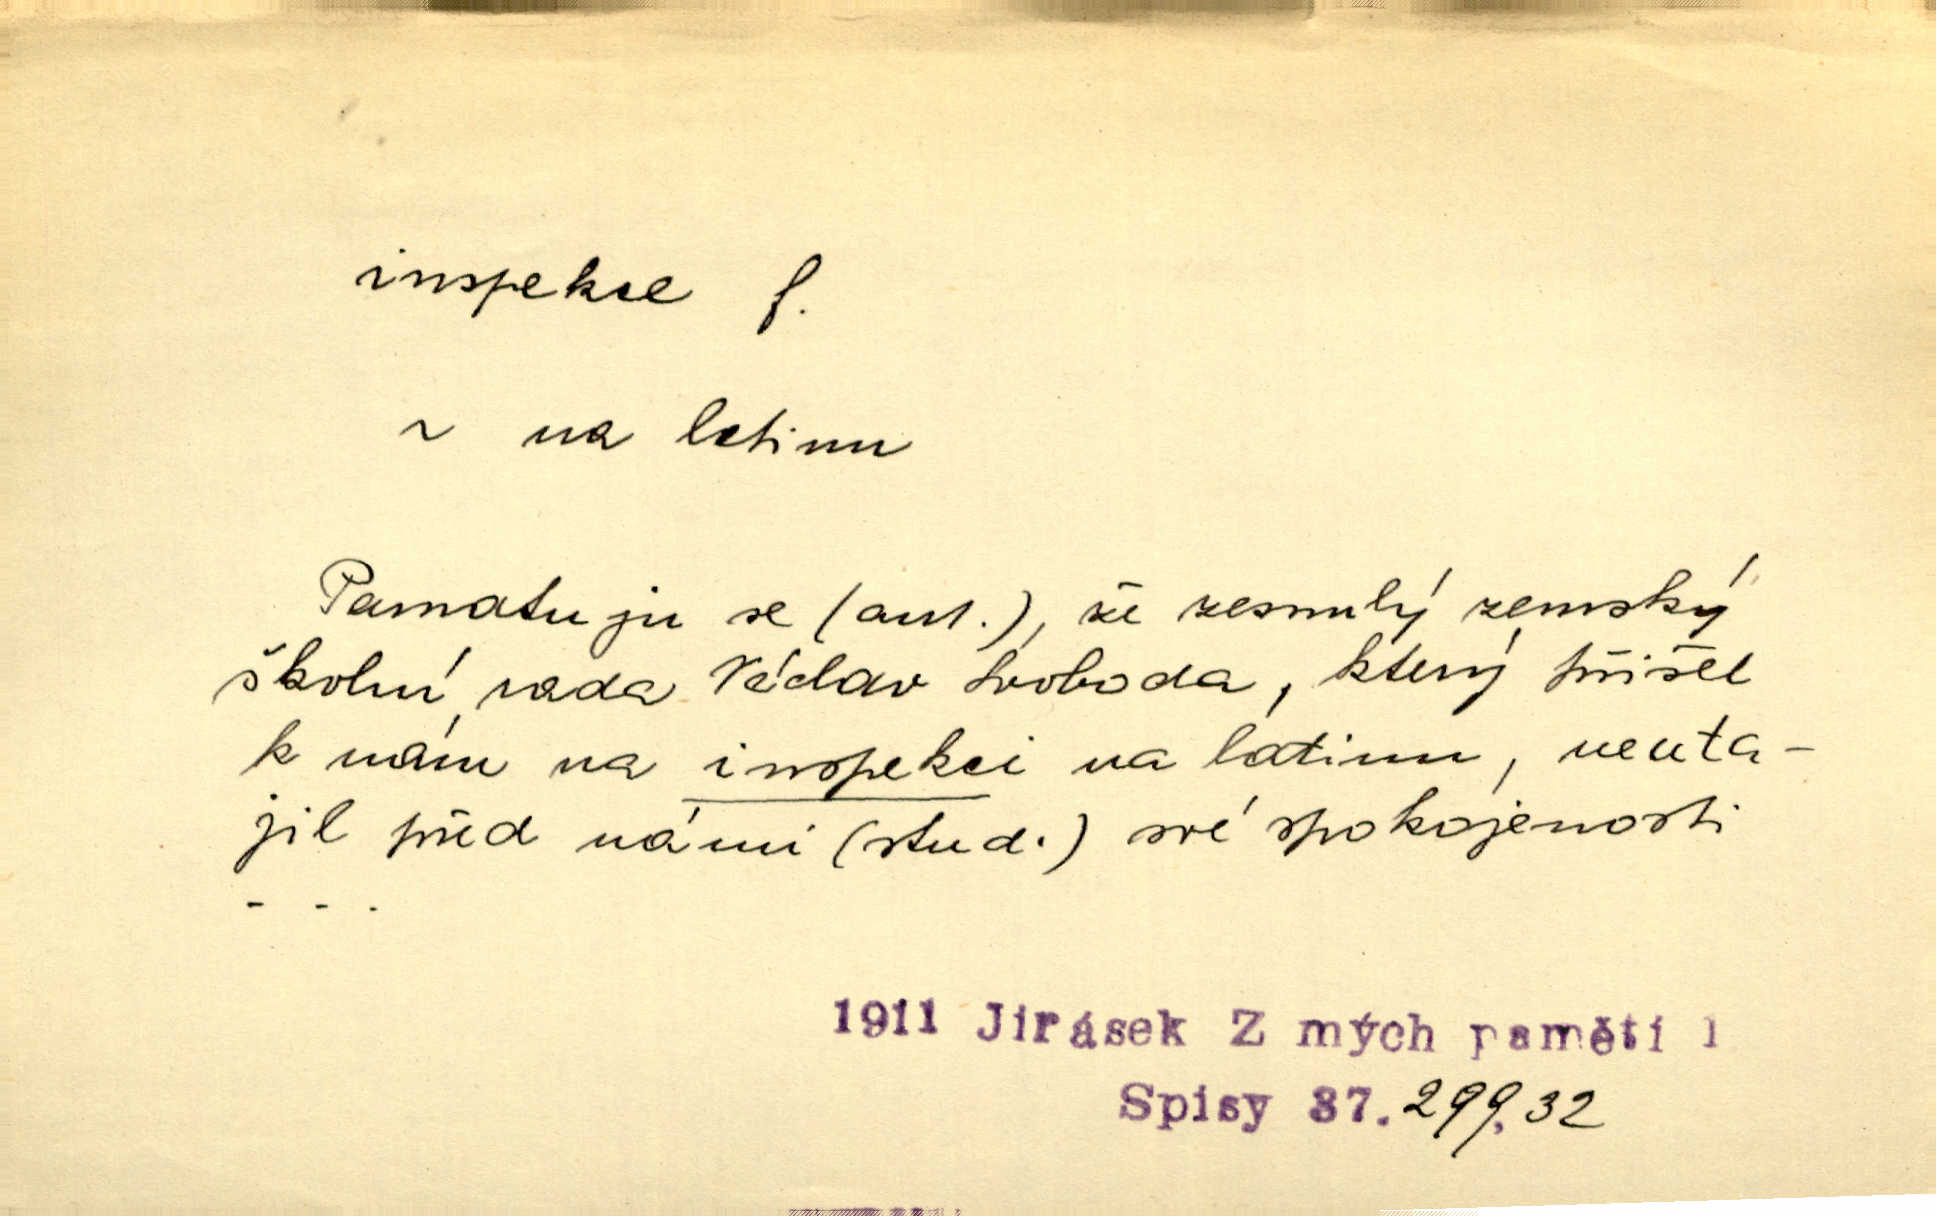 inspekce f.
~ na latinu
Pamatuju se (aut.), že zesnulý zemský
školní rada Václav Svoboda, který přišel
k nám na inspekci na latinu, neuta-
jil před námi (stud.) své spokojenosti
- - .
1911 Jirásek Z mých pamětí 1
Spisy 37. 299, 32